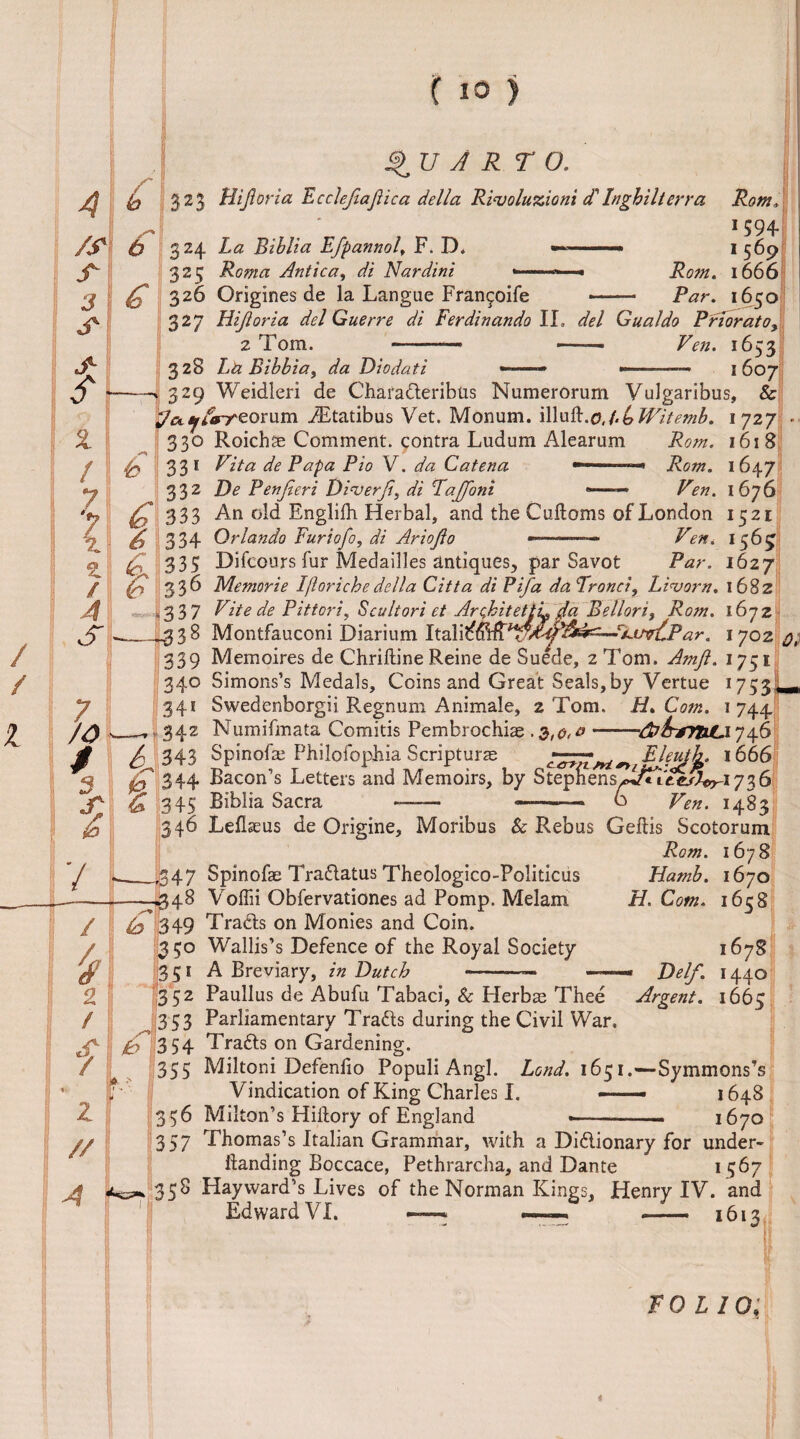 ( 10 )
QUARTO.
4 6 323 Hiſtoria Eccleſiaſtica della Rivoluzioni d'Inghilterra Rom.
1594
15 6 324 La Biblia Eſpannol, F. D. —— 1569
5 325 Roma Antica, di Nardini —— Rom. 1666
3 6 326 Origines de la Langue Françoiſe —— Par. 1650
5 327 Hiſtoria del Guerre di Ferdinando II. del Gualdo Priorato,
2 Tom. —— —— Ven. 1653
5 328 La Bibbia, da Diodati —— —— 1607
5 329 Weidleri de Characteribus Numerorum Vulgaribus, &
eorum Ætatibus Vet. Monum. illuſt. Witemb. 1727
2 330 Roichæ Comment. contra Ludum Alearum Rom. 1618
1 6 331 Vita de Papa Pio V. da Catena —— Rom. 1647
7 332 De Penſieri Diverſi, di Taſſoni —— Ven. 1676
7 6 333 An old Engliſh Herbal, and the Cuſtoms of London 1521
2 6 334 Orlando Furioſo, di Arioſto —— Ven. 1565
2 6 335 Diſcours ſur Medailles antiques, par Savot Par. 1627
1 6 336 Memorie Iſtoriche della Citta di Piſa da Tronci, Livorn. 1682
4 337 Vite de Pittori, Scultori et Architetti, da Bellori, Rom. 1672
5 338 Montfauconi Diarium Italicum Par. 1702
/ 339 Memoires de Chriſtine Reine de Suede, 2 Tom. Amſt. 1751
/ 340 Simons's Medals, Coins and Great Seals, by Vertue 1753
7 341 Swedenborgii Regnum Animale, 2 Tom. H. Com. 1744
2 10 342 Numiſmata Comitis Pembrochiæ 1746
1 6 343 Spinoſæ Philoſophia Scripturæ Eleuth. 1666
3 6 344 Bacon's Letters and Memoirs, by Stephens 1736
5 6 345 Biblia Sacra —— —— Ven. 1483
6 346 Leſlæus de Origine, Moribus & Rebus Geſtis Scotorum
Rom. 1678
1 347 Spinoſæ Tractatus Theologico-Politicus Hamb. 1670
348 Voſſii Obſervationes ad Pomp. Melam H. Com. 1658
1 6 349 Tracts on Monies and Coin.
1 350 Wallis's Defence of the Royal Society 1678
351 A Breviary, in Dutch —— —— Delf. 1440
2 352 Paullus de Abuſu Tabaci, & Herbæ Theé Argent. 1665
1 353 Parliamentary Tracts during the Civil War.
5 6 354 Tracts on Gardening.
1 355 Miltoni Defenſio Populi Angl. Lond. 1651.—Symmons's
Vindication of King Charles I. —— 1648
2 356 Milton's Hiſtory of England —— 1670
11 357 Thomas's Italian Grammar, with a Dictionary for under-
ſtanding Boccace, Pethrarcha, and Dante 1567
4 358 Hayward's Lives of the Norman Kings, Henry IV. and
Edward VI. —— —— —— 1613
FOLIO;